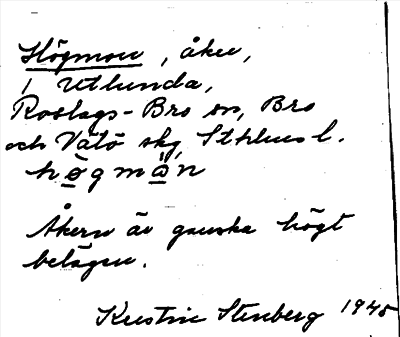 Högmon, åker,
i Utlunda,
Roslags-Bro sn, Bro
och Vätö skg, Sthlms l.
hø̀gmän
Åkern är ganska högt
belägen.
Kerstin Stenberg 1945